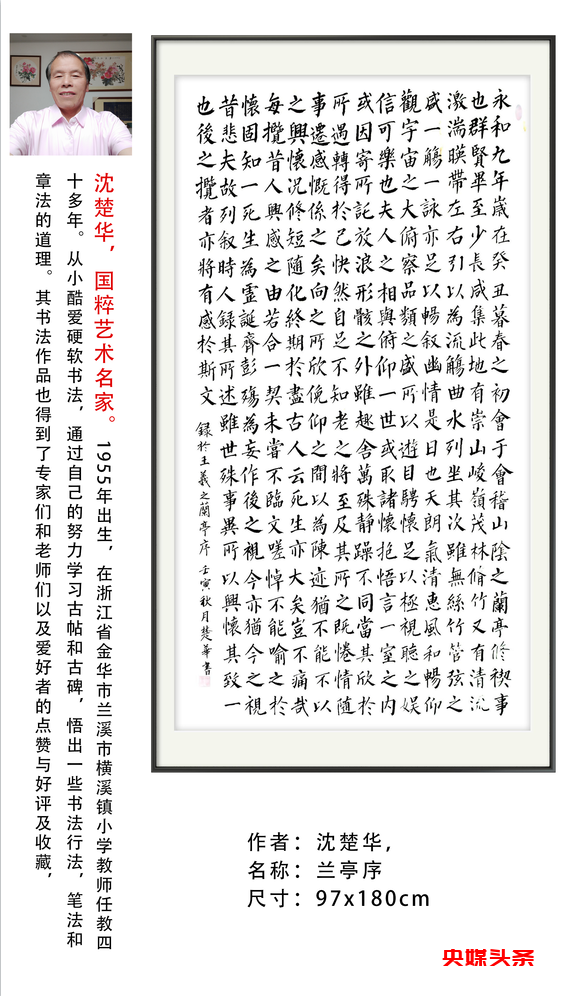 沈楚华，国粹艺术名家。1955年出生，在浙江省金华市兰溪市横溪镇小学教师任教四
十多年。从小酷爱硬软书法，通过自己的努力学习古帖和古碑，悟出一些书法行法，笔法和
章法的道理。其书法作品也得到了专家们和老师们以及爱好者的点赞与好评及收藏，
永和九年歲在癸丑暮春之初會于會稽山陰之蘭亭修禊事
也群賢畢至少長咸集此地有崇山峻嶺茂林脩竹又有清流
激湍暎帶左右引以為流觴曲水列坐其次雖無絲竹管弦之
咸一觴一詠亦足以暢叙幽情是日也天朗氣清惠風和暢仰
觀宇宙之大俯察品類之盛所以遊目騁懷足以極視聽之娱
信可樂也夫人之相與俯仰一世或取諸懷抱悟言一室之内
或因寄所託放浪形骸之外雖趣舍萬殊静躁不同當其欣於
所遇轉得於己快然自足不知老之將至及其所之既惓情隨
事遷感慨係之矣向之所欣俛仰之間以為陳迹猶不能不以
之興懷况修短隨化終期於盡古人云死生亦大矣豈不痛哉
每攬昔人興感之由若合一契未嘗不臨文嗟悼不能喻之於
懷固知一死生為虚誕齊彭殤為妄作後之視今亦猶今之視
昔悲夫故列叙時人録其所述雖世殊事異所以興懷其致一
也後之攬者亦將有感於斯文
録於王羲之蘭亭序壬寅秋月楚華書
作者：沈楚华，
名称：兰亭序
尺寸：97x180cm
央媒头条